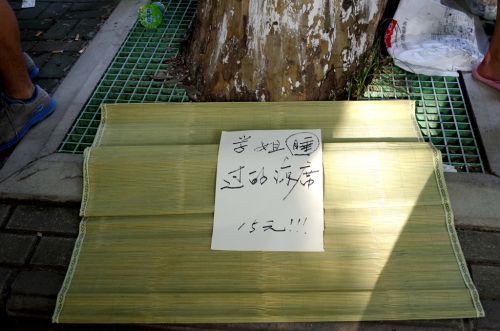 学姐睡
过的凉席
15元!!!